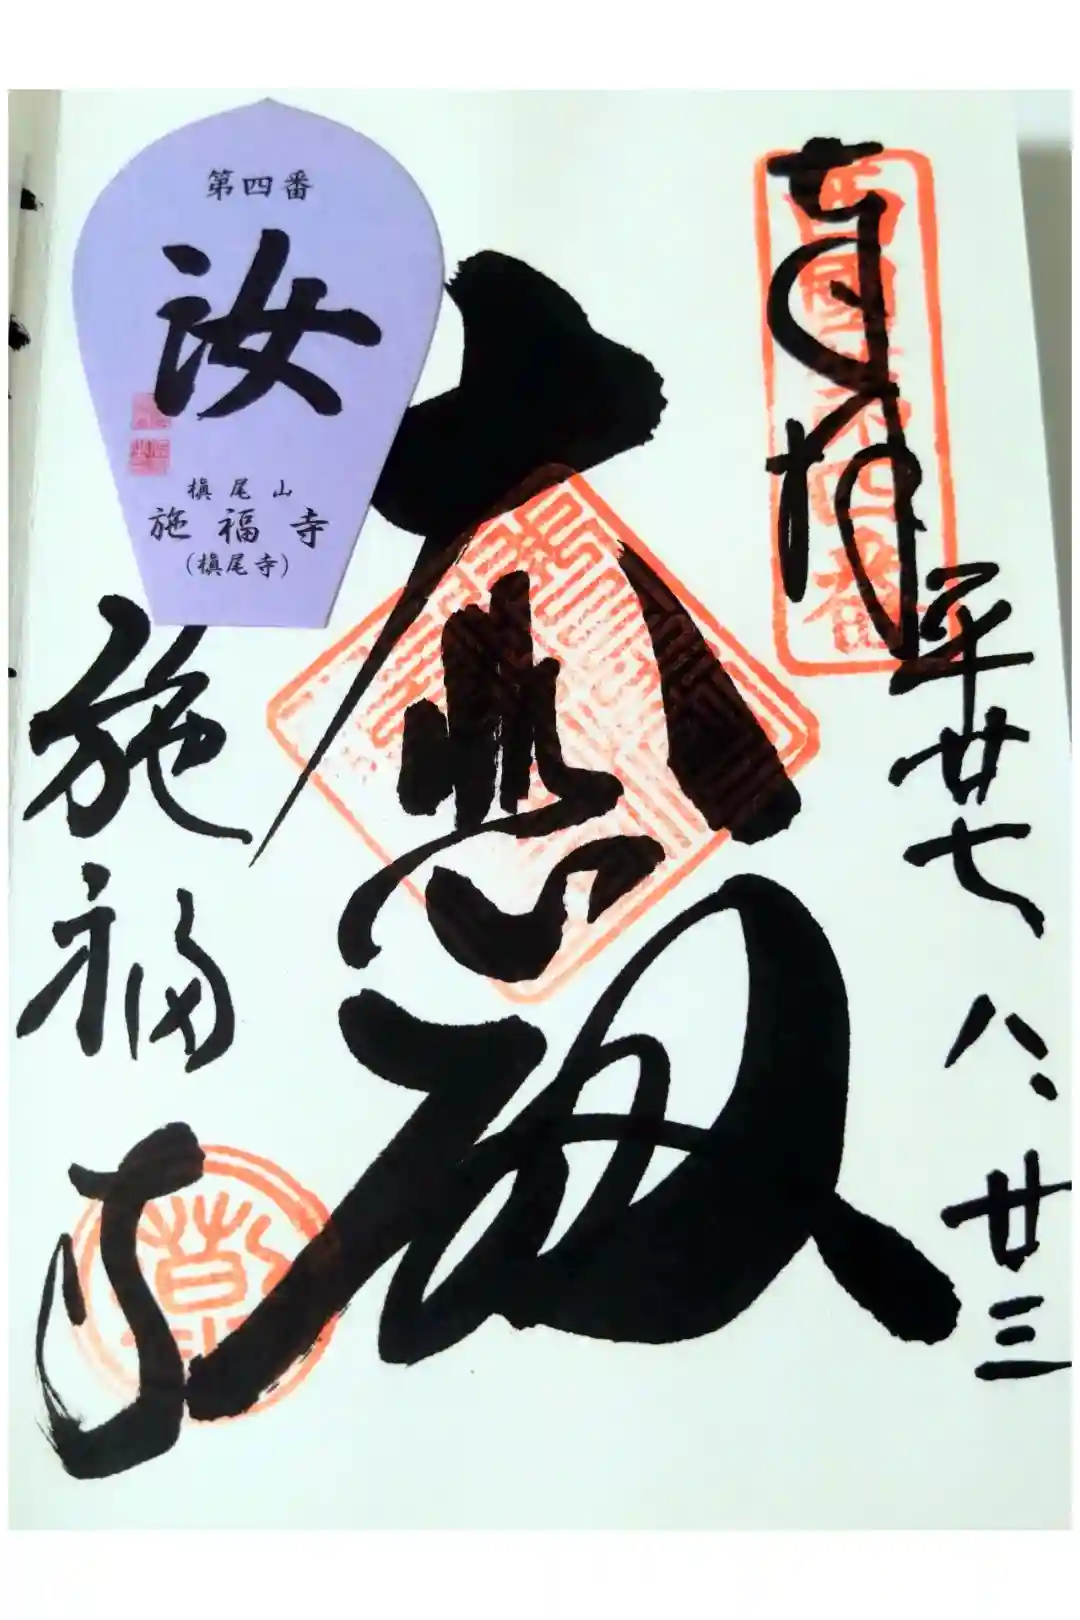 奉拝
西国第四番
平廿七八、廿三
大悲殿
施福寺
第四番
汝
槇尾山
施福寺
(槇尾寺)